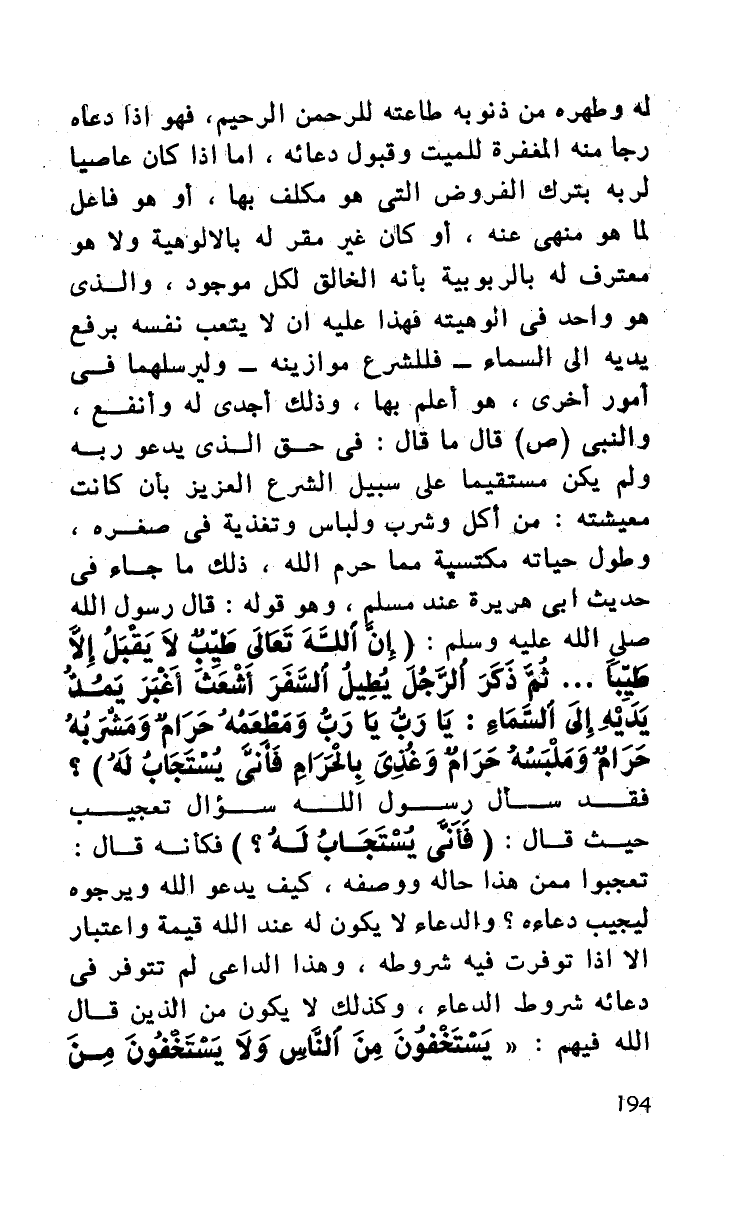 له وطهره من ذنوبه طاعته للرحمن الرحيم، فهو اذا دعاه
رجا منه المغفرة للميت وقبول دعائه ، اما اذا كان عاصيا
لربه بترك الفروض التى هو مكلف بها ، أو هو فاعل
لما هو منهى عنه ، أو كان غير مقر له بالالوهية ولا هو
معترف له بالربوبية بأنه الخالق لكل موجود ، والـذى
هو واحد فى الوهيته فهذا عليه ان لا يتعب نفسه برفع
يديه الى السماء – فللشرع موازينه – وليرسلهما فـى
أمور أخرى ، هو أعلم بها ، وذلك أجدى له وأنفـع ،
والنبى (ص) قال ما قال : فى حـق الـذى يدعو ربـه
ولم يكن مستقيما على سبيل الشرع العزيز بأن كانت
معيشته : من أكل وشرب ولباس وتغذية فى صغـره ،
وطول حياته مكتسبة مما حرم الله ، ذلك ما جـاء فى
حديث ابى هريرة عند مسلم ، وهو قوله : قال رسول الله
صلى الله عليه وسلم : ( إِنَّ اَللَّهَ تَعَالَى طَيِّبٌ لَا يَقْبَلُ إِلَّا
طَيِّباً ... ثُمَّ ذَكَرَ اَلرَّجُلَ يُطِيلُ اَلسَّفَرَ أَشْعَثَ أَغْبَرَ يَمُـدُّ
يَدَيْهِ إِلَى اَلسَّمَاءِ : يَا رَبُّ يَا رَبُّ وَمَطْعَمُهُ حَرَامٌ وَمَشْرَبُهُ
حَرَامٌ وَمَلْبَسُهُ حَرَامٌ وَغُذِىَ بِالْحَرَامِ فَأَنَّى يُسْتَجَابُ لَهُ ) ؟
فقـد سـأل رسـول اللـه سـؤال تعجيـب
حيـث قـال : ( فَأَنَّى يُسْتَجَـابُ لَـهُ ؟ ) فكأنـه قـال :
تعجبوا ممن هذا حاله ووصفه ، كيف يدعو الله ويرجوه
ليجيب دعاءه ؟ والدعاء لا يكون له عند الله قيمة واعتبار
الا اذا توفرت فيه شروطه ، وهذا الداعى لم تتوفر فى
دعائه شروط الدعاء ، وكذلك لا يكون من الذين قـال
الله فيهم : « يَسْتَخْفُونَ مِنَ اَلنَّاسِ وَلَا يَسْتَخْفُونَ مِـنَ
194